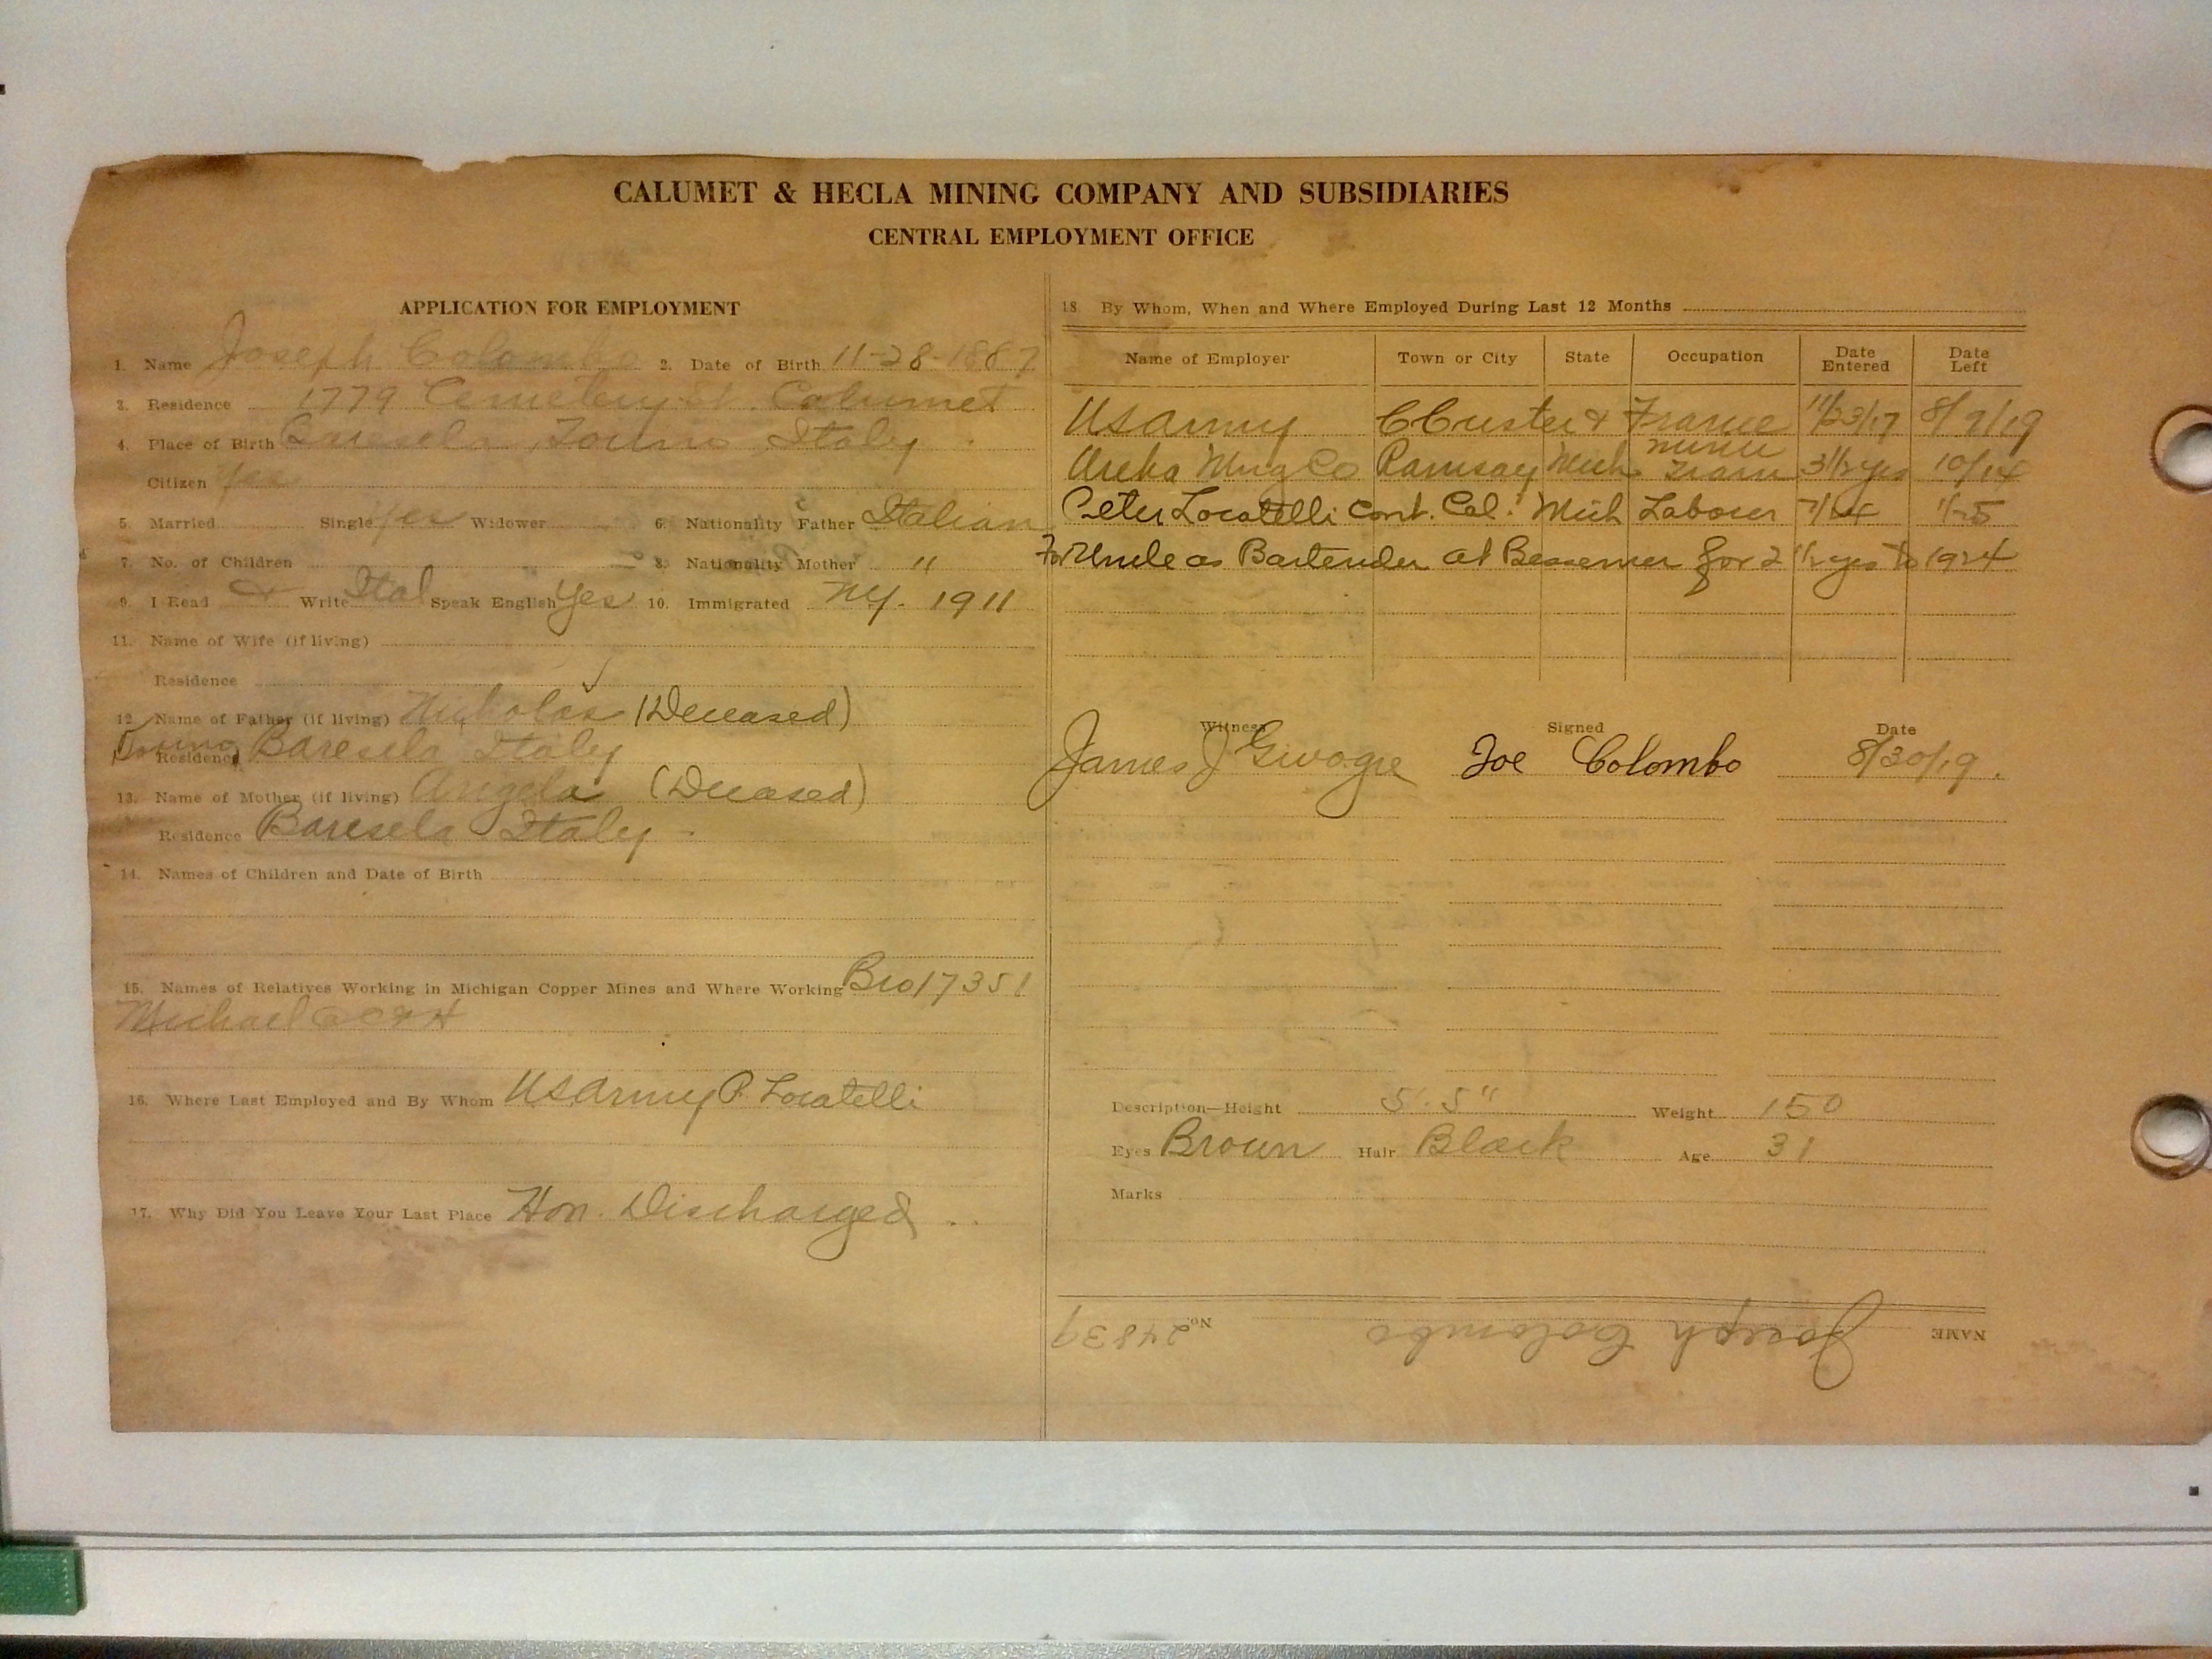 CALUMET & HECLA MINING COMPANY AND SUBSIDIARIES
CENTRAL EMPLOYMENT OFFICE
APPLICATION FOR EMPLOYMENT
1. Name Joseph Colombo 2. Date of Birth 11-28-1887
3. Residence 1779 Cemetery St. Calumet
4. Place of Birth Italy
Citizen Yes
5. Married Single Yes Widower 6. Nationality Father Italian
7. No. of Children 8. Nationality Mother "
9. I Read & Write Ital Speak English Yes 10. Immigrated NY. 1911
11. Name of Wife (if living)
Residence
12. Name of Father (if living) Nicholas (Deceased)
Residence Baresela Italy
13. Name of Mother (if living) Angela (Deceased)
Residence Baresela Italy
14. Names of Children and Date of Birth
15. Names of Relatives Working in Michigan Copper Mines and Where Working Bro 17351
Michael C & H
16. Where Last Employed and By Whom US Army P. Locatelli
17. Why Did You Leave Your Last Place Hon. Discharged
18. By Whom, When and Where Employed During Last 12 Months
Name of Employer Town or City State Occupation Date Entered Date Left
US Army C Custer & France 11/23/17 8/9/19
Mng Co Ramsay Mich Tram 3 1/2 yrs 10/14
Peter Locatelli Cont. Cal. Mich Laborer
For Uncle as Bartender at Bessemer for 2 1/2 yrs to 1924
Witness Signed Date
James J Joe Colombo 8/30/19.
Description—Height 5'. 5" Weight 150
Eyes Brown Hair Black Age 31
Marks
NAME Joseph Colombo No. 24839